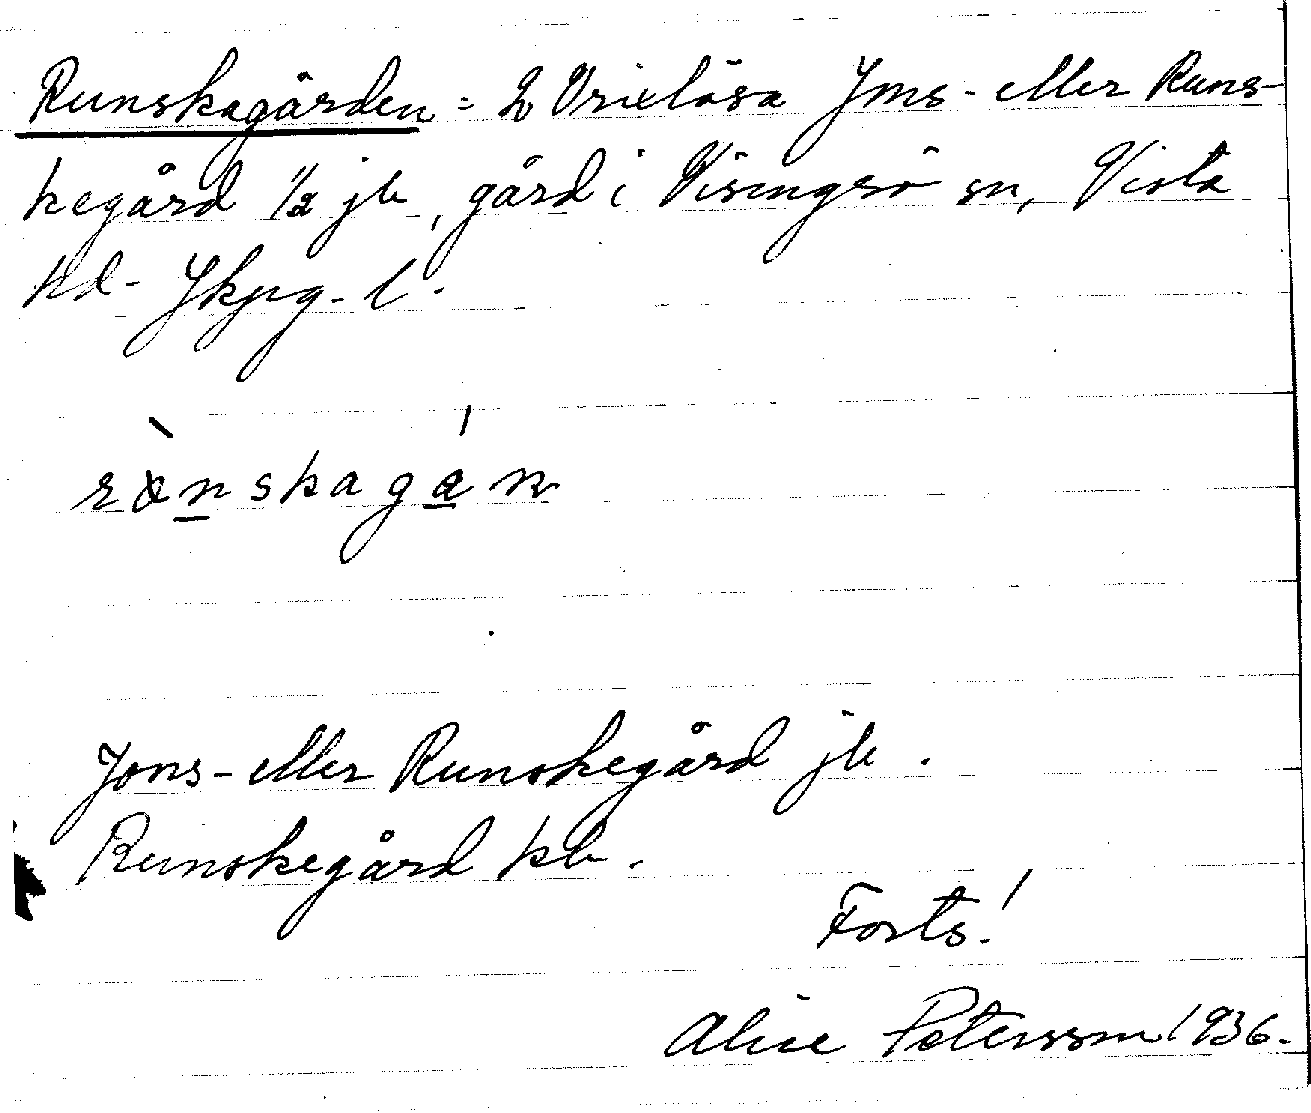 Runskagården = 2 Vrixlösa Jons- eller Runs-
kegård 1/2 jb, gård i Visingsö sn, Vista
hd. Jkpg. l.
rønskagán
Jons- eller Runskegård jb.
Runskegård kb.
Forts!
Alice Petersson 1936.